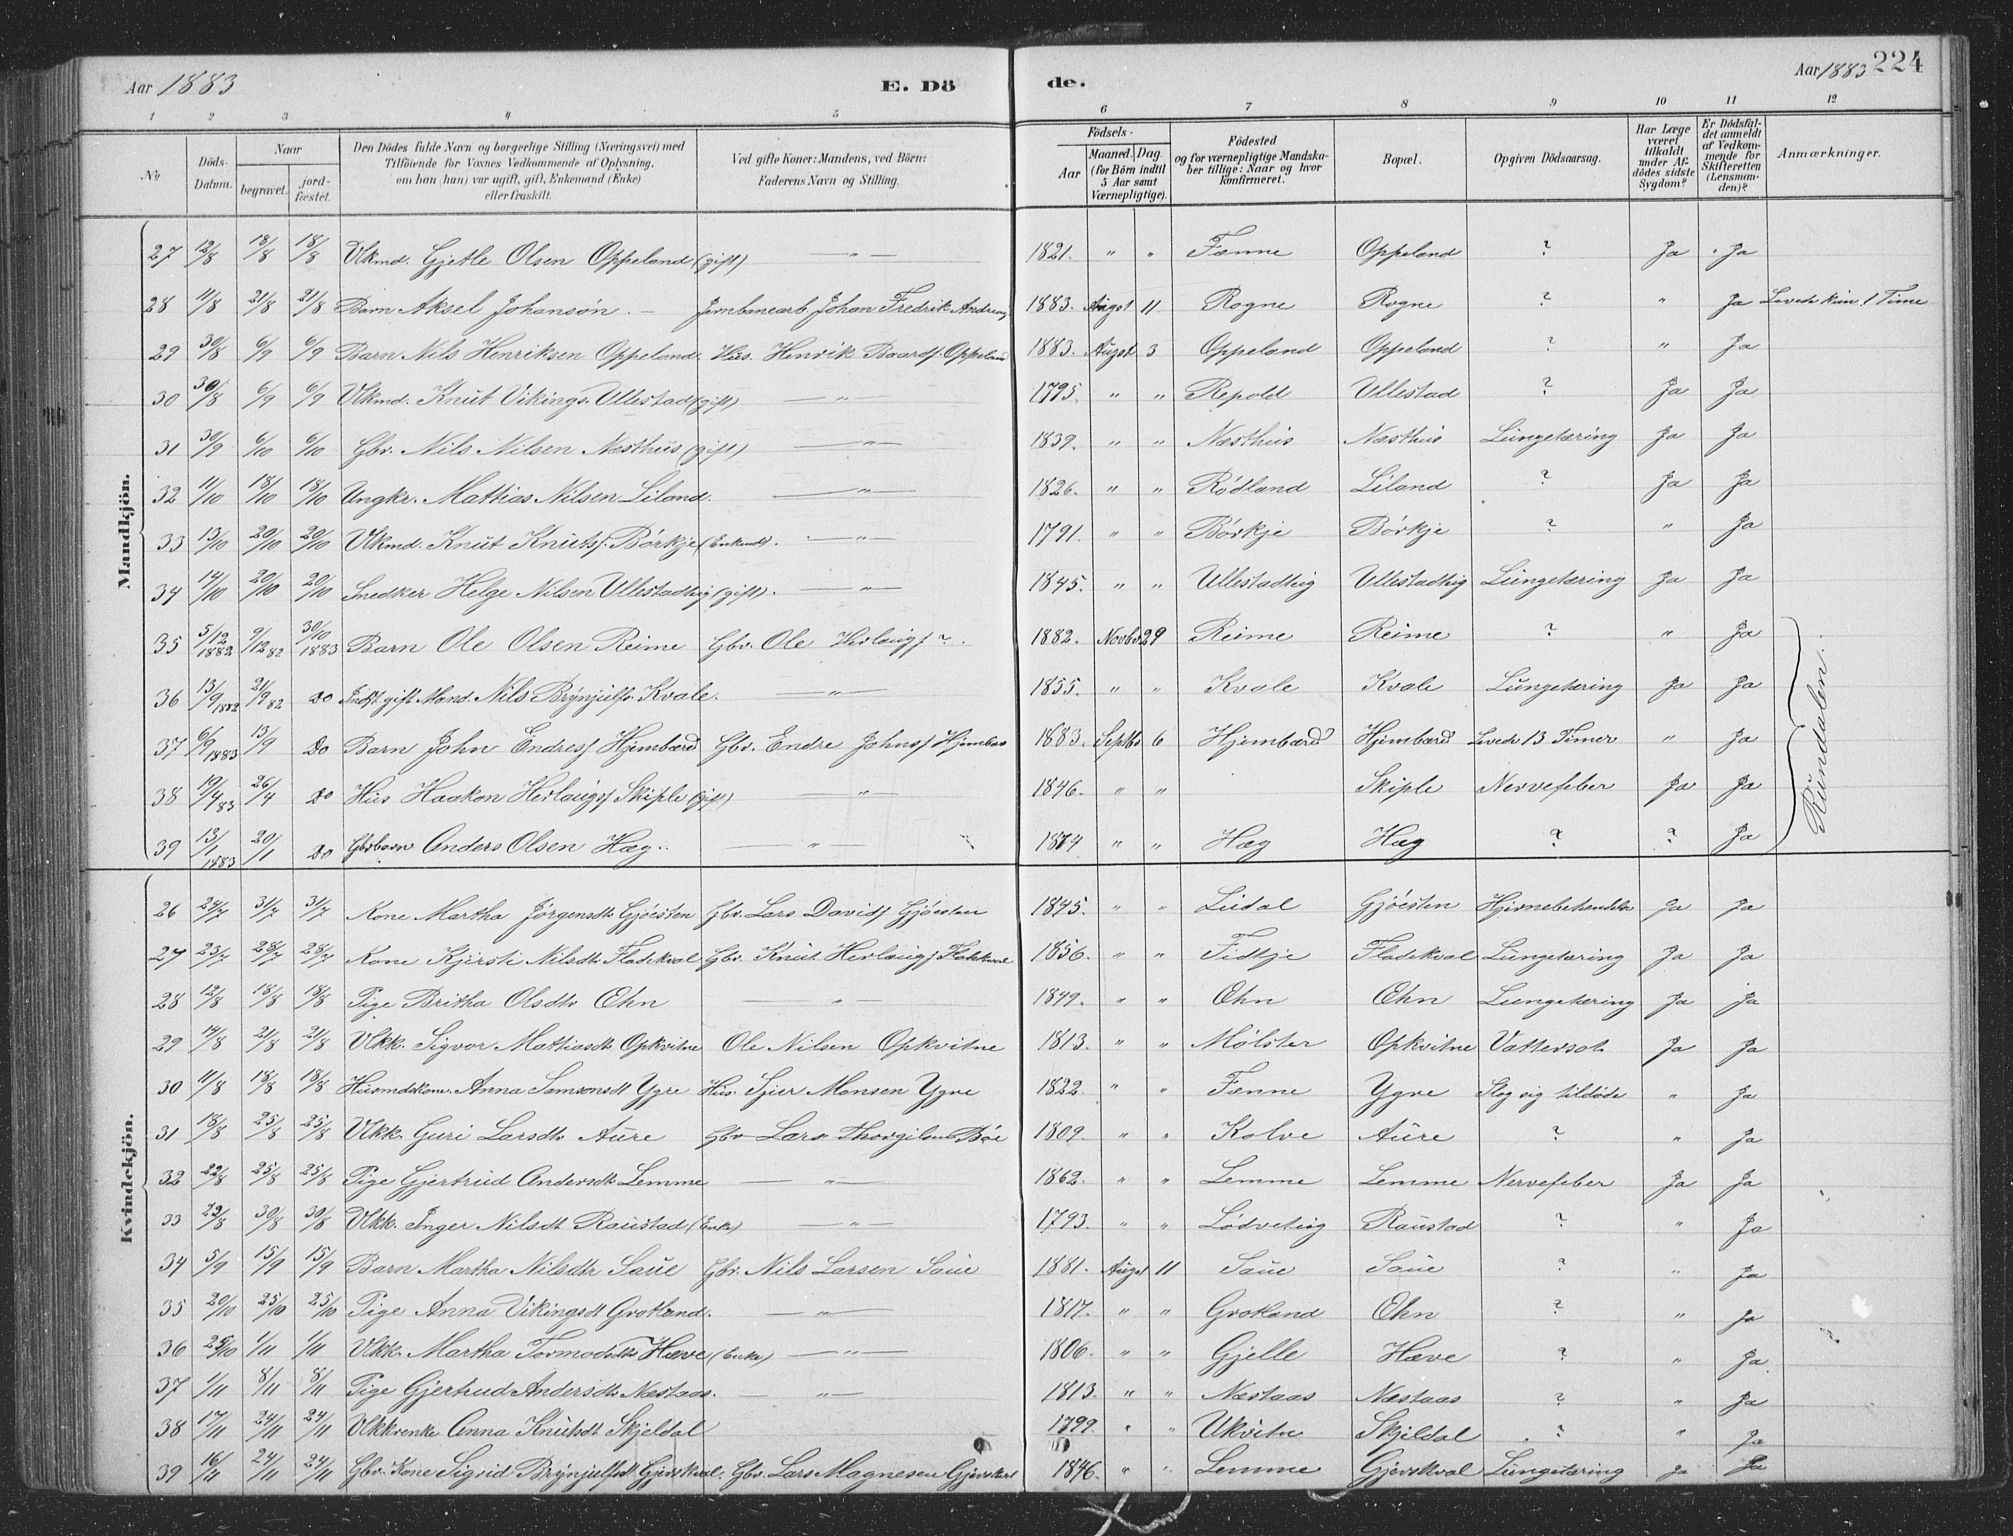 Aar 1883
E. Dö
de.
Aar 1883 224
1 2 3 4 5 6 7 8 9 10 11 12
No
Döds-Datum.
Naar
begravet.
jord-fæstet.
Den Dödes fulde Navn og borgerlige Stilling (Næringsvei) med Tilföiende for Voxnes Vedkommende af Oplysning, om han (hun) var ugift, gift, Enkemand (Enke) eller fraskilt.
Ved gifte Koner: Mandens, ved Börn: Faderens Navn og Stilling.
Födsels-
Aar
Maaned. Dag. (for Börn indtil 5 Aar samt Værnepligtige).
Födested og for værnepligtige Mandskaber tillige: Naar og hvor konfirmeret.
Bopæl.
Opgiven Dödsaarsag.
Har Læge været tilkaldt under Afdödes sidste Sygdom?
Er Dödsfaldet anmeldt af Vedkommende for Skifteretten (Lensmanden)?
Anmærkninger.
Mandkjön.
27 12/8 18/8 18/8 Vlkmd. Gjetle Olsen Oppeland (gift) — " — 1821. " " Fænne Oppeland ? Ja Ja
28 11/8 21/8 21/8 Barn Aksel Johansøn. — Jernbanearb. Johan Fredrik 1883. Augst 11 Rogne Rogne ? " Ja Levede kun 1 Time
29 30/8 6/9 6/9 Barn Nils Henriksen Oppeland Hus. Henrik Baards. Oppeland 1883. Augst 3 Oppeland Oppeland ? " Ja
30 30/8 6/9 6/9 Vlkmd. Knut Vikings. Ullestad (gift) — " — 1795. " " Repold Ullestad ? Ja Ja
31 30/9 6/10 6/10 Gbr. Nils Nilsen Næsthus (gift) — " — 1839. " " Næsthus Næsthus Lungetæring Ja Ja
32 11/10 18/10 18/10 Ungkr. Mathias Nilsen Liland. — " — 1826. " " Rødland Liland ? Ja Ja
33 13/10 20/10 20/10 Vlkmd. Knut Knuts. Børkje (Enkemd). — " 1791. " " Børkje Børkje ? " Ja
34 14/10 20/10 20/10 Snedker Helge Nilsen Ullestadhig (gift). — " — 1845. " " Ullestadhig Ullestadhig Lungetæring Ja Ja
35 5/12 1882 9/12 82 30/10 1883 Barn Ole Olsen Reime Gbr. Ole Herlaugs. ? 1882. Novbr 29 Reime Reime ? " Ja
36 13/9 1882 21/9 82 Do Indst gift Mand. Nils Brynjulfs. Kvale. — " — 1855. " " Kvale Kvale Lungetæring Ja Ja
37 6/9 1883 13/9 Do Barn John Endres. Hjembærd Gbr. Endre Johns. 1883. Septbr 6 Hjembærd Hjembærd Levede 13 Timer " Ja
38 19/4 83 26/4 Do Hus Haakon Herlaugs. Skiple (gift) — " — 1846. " " Skiple Nervefeber Ja Ja
39 13/1 1883 20/1 Do Gbrbarn Anders Olsen Hæg. — " 1874 " " Hæg Hæg ? ? Ja
Rundalen.
Kvindekjön.
26 24/7 31/7 31/7 Kone Martha Jørgensdt Gjøesten Gbr. Lars Davids. Gjøesten 1845. " " Lidal Gjøesten Ja Ja
27 23/7 28/7 28/7 Kone Kjersti Nilsdtr Fladekval Gbr. Knut Herlaugs. 1856. " " Fidtje Fladekval Lungetæring Ja Ja
28 12/8 18/8 18/8 Pige Britha Olsdtr Ehn — " 1849. " " Ehn Ehn Lungetæring Ja Ja
29 14/8 21/8 21/8 Vlkk. Sigvor Mathiasdt Opkvitne Ole Nilsen Opkvitne 1813. " " Mølster Opkvitne Vattersot Ja Ja
30 11/8 18/8 18/8 Husmdskone. Anna Samsonsdt Ygre Hus. Sjur Monsen Ygre 1822 " " Fænne Ygre Slog sig tildøde " Ja
31 18/8 25/8 25/8 Vlkk. Guri Larsdtr Aure Gbr Lars Thorgilsen Bøe 1809. " " Kolve Aure ? " Ja
32 22/8 25/8 25/8 Pige Gjertrud Andersdt Lemme — " — 1862. " " Lemme Lemme Nervefeber Ja Ja
33 23/8 30/8 30/8 Vlkk. Inger Nilsdt Raustad (Enke) — " — 1793. " " Lødvehig Raustad ? " Ja
34 5/9 15/9 15/9 Barn Martha Nilsdtr Saue Gbr. Nils Larsen Saue 1881. Augst 11 Saue Saue ? " Ja
35 20/10 25/10 25/10 Pige Anna Vikingsdt Grotland. — " — 1817. " " Grotland Ehn ? " Ja
36 25/10 1/11 1/11 Vlkk. Martha Tormodsdtr Hæve (Enke) — " — 1806. " " Gjelle Hæve ? " Ja.
37 1/11 8/11 8/11 Pige Gjertrud Andersdt Næstaas. — " — 1813. " " Næstaas Næstaas ? " Ja
38 17/11 24/11 24/11 Vlkkvenke Anna Knutsdt Skjeldal 1799. " " Ukvitn Skjeldal ? " Ja
39 16/11 24/11 24/11 Gbr. Kone Sigrid Brynjulfsdt Gjerskval. Gbr. Lars Magnesen Gjerskval 1846. " " Lemme Gjerskval Lungetæring Ja Ja